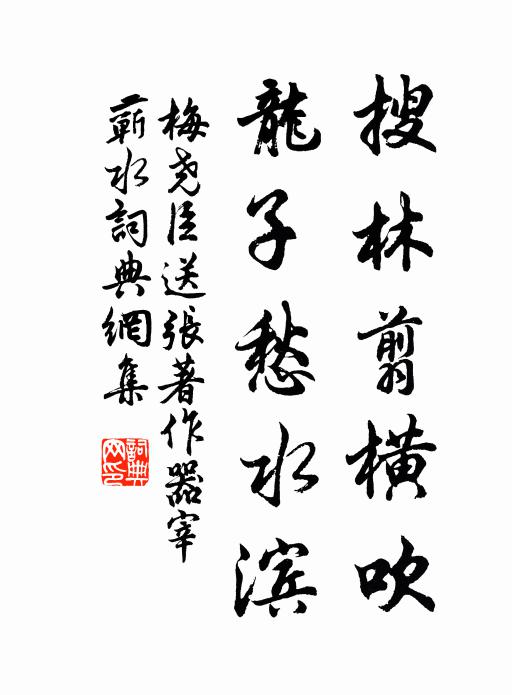 搜林翦橫吹
龍子愁水滨
梅尧臣送張著作器宰
蕲水詞典網集
詞典
网印